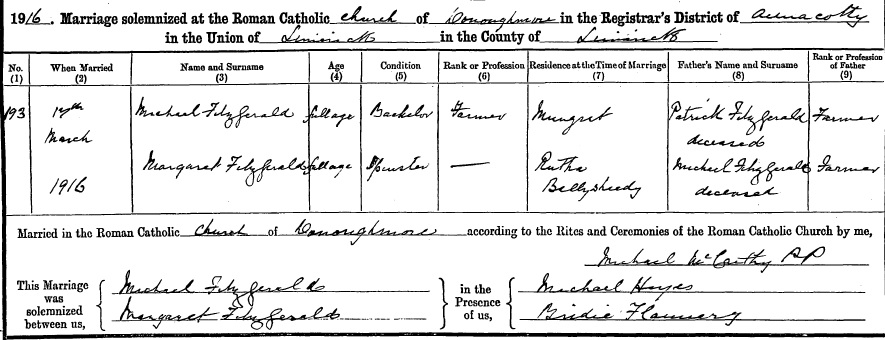 1916. Marriage solemnized at the Roman Catholic Church of Donoughmore in the Registrar's District of Annacotty
in the Union of Limerick in the County of Limerick
No. (1) When Married (2) Name and Surname (3) Age (4) Condition (5) Rank or Profession (6) Residence at the Time of Marriage (7) Father's Name and Surname (8) Rank or Profession of Father (9)
193 Michael Fitzgerald full age Bachelor Farmer Mungret Patrick Fitzgerald Farmer
March deceased
Margaret Fitzgerald full age Spinster — Michael Fitzgerald Farmer
1916 Ballysheedy deceased
Married in the Roman Catholic Church of Donoughmore according to the Rites and Ceremonies of the Roman Catholic Church by me,
Michael McCarthy PP
This Marriage was solemnized between us, Michael Fitzgerald in the Presence of us, Michael Hayes
Margaret Fitzgerald Bridie Flannery